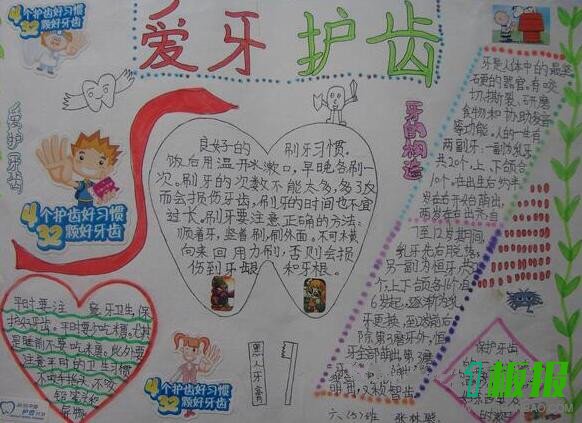 4个护齿好习惯
32颗好牙齿
爱牙护齿
爱护牙齿
4个护齿好习惯
32颗好牙齿
良好的刷牙习惯，
饭后用温开水漱口，早晚各刷一
次。刷牙的次数不能太多，多了反
而会损伤牙齿，刷牙的时间也不宜
过长。刷牙要注意正确的方法：
顺着牙，竖着刷，刷外面。不可横
向来回用力刷，否则会损
伤到牙龈和牙根。
牙的构造
牙是人体中的最坚
硬的器官。有咬
切、撕裂、研磨
食物和协助发音
等功能。人的一生有
两副牙，一副为乳牙
共20个，上、下颌各
10个。在出生后约半
岁左右开始萌出，
两岁左右出齐。
7至12岁期间，
乳牙先后脱落，
另一副为恒牙，
个，上下颌各16个
6岁起，逐渐为
牙更换，至12岁前后
除第3磨牙外，恒
牙全部萌出，第3磨
又称智齿
平时要注意牙卫生，保
护好牙齿。平时要少吃糖，尤其
是睡前不要吃糖。此外要
注意平时的卫生习惯
不咬手指头，不咬
铅笔和
异物
4个护齿好习惯
32颗好牙齿
黑人牙膏
保护牙齿
六(5)班 张林骏
板报